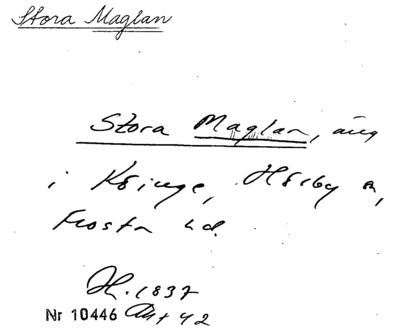 Stora Maglan
Stora Maglan, äng
i Köinge, Hörby sn,
Frosta hd.
H. 1837
Nr 10446 Akt 42